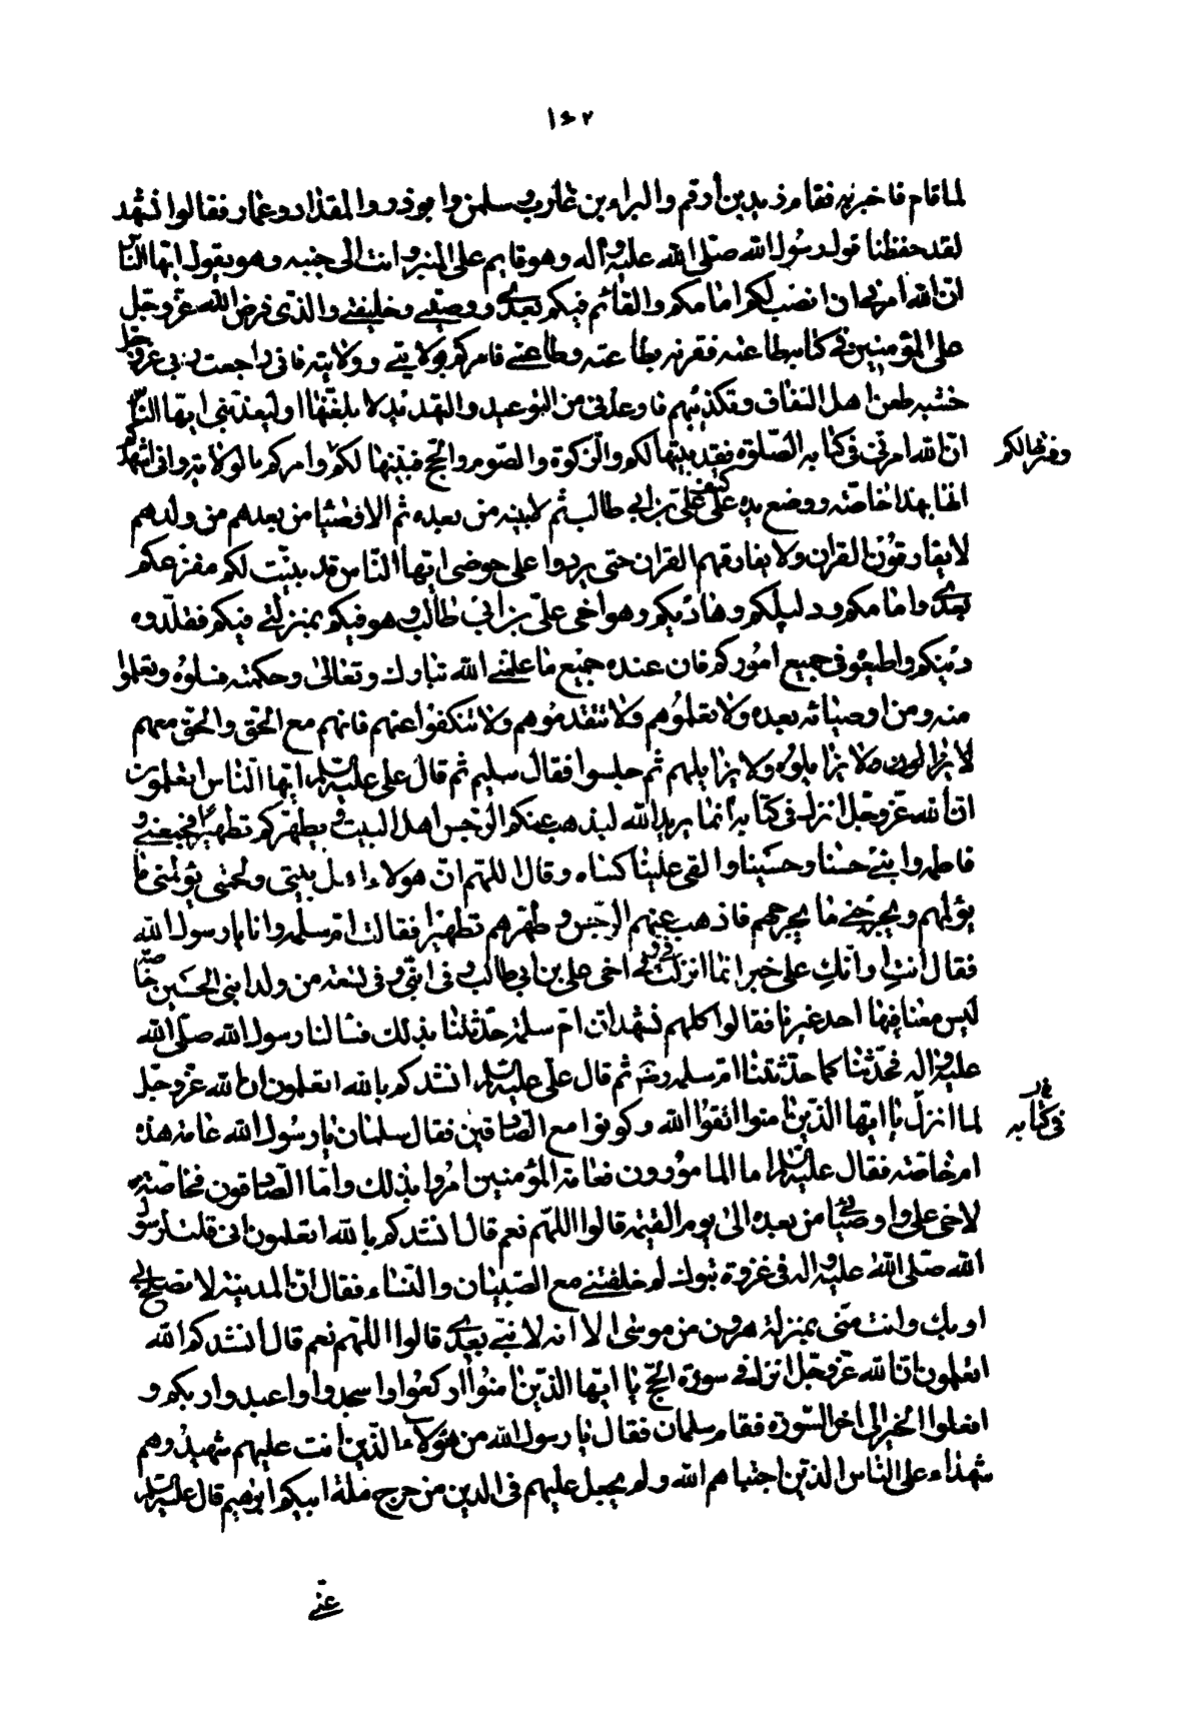 ١٤٢
لما قام فاخبر به فقام زيد بن أرقم والبراء بن عازب وسلمن وابوذر والمقداد وعمار فقالوا نشهد
لقد حفظنا قول رسول الله صلى الله عليه وآله وهو قايم على المنبر وانت الى جنبه وهو يقول ايها الناس
ان الله امرنى ان انصب لكم امامكم والقائم فيكم بعدى ووصيى وخليفتى والذى فرض الله عز وجل
على المؤمنين فى كتابه طاعته فقرنه بطاعته وطاعتى فامركم بولايتى وولايته فانى راجعت ربى عز وجل
خشيه طعن اهل النفاق وتكذيبهم فاوعدنى من الوعيد والتهديد لابلغنها او ليعذبنى ايها الناس
ان الله امركم فى كتابه الصلوة فقد بينتها لكم والزكوة والصوم والحج فبينتها لكم وامركم بالولاية وانى اشهدكم
وفسرتها لكم
انها بهذا خاصته ووضع يده على كتف على بن ابى طالب ثم لابنيه من بعده ثم الاوصيا من بعدهم من ولدهم
لا يفارقون القران ولا يفارقهم القران حتى يردوا على حوضى ايها الناس قد بينت لكم مفزعكم
بعدى وامامكم ودليلكم وهاديكم وهو اخى على بن ابى طالب وهو فيكم بمنزلتى فيكم فقلدوه
دينكم واطيعوه فى جميع اموركم فان عنده جميع ما علمنى الله تبارك وتعالى وحكمته فسلوه وتعلموا
منه ومن اوصيائه بعده ولا تعلموهم ولا تتقدموهم ولا تتخلفوا عنهم فانهم مع الحق والحق معهم
لا يزالون ولا يزايلوه ولا يزايلهم ثم جلسوا فقال سليم ثم قال على عليه السلام ايها الناس اتعلمون
ان الله عز وجل انزل فى كتابه انما يريد الله ليذهب عنكم الرجس اهل البيت ويطهركم تطهيرا فجمعنى و
فاطمه وابنى حسنا وحسينا والقى علينا كساه وقال اللهم ان هولاء اهل بيتى ولحمتى يؤلمنى ما
يؤلمهم ويجرحنى ما يجرحهم فاذهب عنهم الرجس وطهرهم تطهيرا فقالت ام سلمه وانا يا رسول الله
فقال انت وانك على خير انما انزلت فى وفى اخى على بن ابى طالب وفى ابنى وفى تسعه من ولد ابنى الحسين خاصه
ليس معنا فيها احد غيرنا فقالوا كلهم نشهد ان ام سلمة حدثتنا بذلك فسالنا رسول الله صلى الله
عليه واله فحدثنا كما حدثتنا ام سلمه رضه ثم قال على عليه السلام انشدكم بالله اتعلمون ان الله عز وجل
لما انزل يا ايها الذين امنوا اتقوا الله وكونوا مع الصادقين فقال سلمان يا رسول الله عامة هذه
فى كتابه
ام خاصته فقال عليه السلام اما المامورون فعامة المؤمنين امروا بذلك واما الصادقون فخاصته
لاخى على واوصيائى من بعده الى يوم القيمه قالوا اللهم نعم قال انشدكم بالله اتعلمون انى قلت لرسول
الله صلى الله عليه واله فى غزوة تبوك لم خلفتنى مع الصبيان والنساء فقال ان المدينة لا تصلح الا بى
او بك وانت منى بمنزلة هرون من موسى الا انه لا نبى بعدى قالوا اللهم نعم قال انشدكم الله
اتعلمون ان الله عز وجل انزل فى سورة الحج يا ايها الذين امنوا اركعوا واسجدوا واعبدوا ربكم و
افعلوا الخير الى اخر السورة فقام سلمان فقال يا رسول الله من هؤلاء الذين انت عليهم شهيد وهم
شهداء على الناس الذين اجتباهم الله ولم يجعل عليهم فى الدين من حرج ملة ابيكم ابرهيم قال عليه السلام
عنى